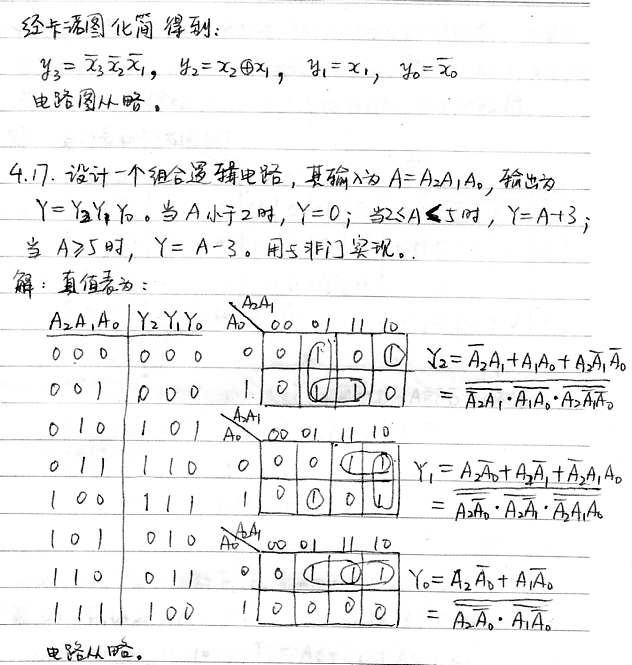 经卡诺图化简得到:
y₃ = x̅₃x̅₂x̅₁, y₂ = x₂⊕x₁, y₁ = x₁, y₀ = x̅₀
电路图从略。
4.17. 设计一个组合逻辑电路, 其输入为 A=A₂A₁A₀, 输出为
Y=Y₂Y₁Y₀。当 A 小于2时, Y=0; 当2≤A<5时, Y=A+3;
当 A≥5时, Y=A-3。用与非门实现。
解: 真值表为:
A₂A₁A₀ Y₂Y₁Y₀
0 0 0 0 0 0
0 0 1 0 0 0
0 1 0 1 0 1
0 1 1 1 1 0
1 0 0 1 1 1
1 0 1 0 1 0
1 1 0 0 1 1
1 1 1 1 0 0
A₂A₁
A₀ 00 01 11 10
0 0 1 0 1
1 0 1 1 0
Y₂ = A̅₂A₁ + A₁A₀ + A₂A̅₁A̅₀
= \overline{\overline{A̅₂A₁}·\overline{A₁A₀}·\overline{A₂A̅₁A̅₀}}
A₂A₁
A₀ 00 01 11 10
0 0 0 1 1
1 0 1 0 1
Y₁ = A₂A̅₀ + A₂A̅₁ + A̅₂A₁A₀
= \overline{\overline{A₂A̅₀}·\overline{A₂A̅₁}·\overline{A̅₂A₁A₀}}
A₂A₁
A₀ 00 01 11 10
0 0 1 1 1
1 0 0 0 0
Y₀ = A₂A̅₀ + A₁A̅₀
= \overline{\overline{A₂A̅₀}·\overline{A₁A̅₀}}
电路从略。